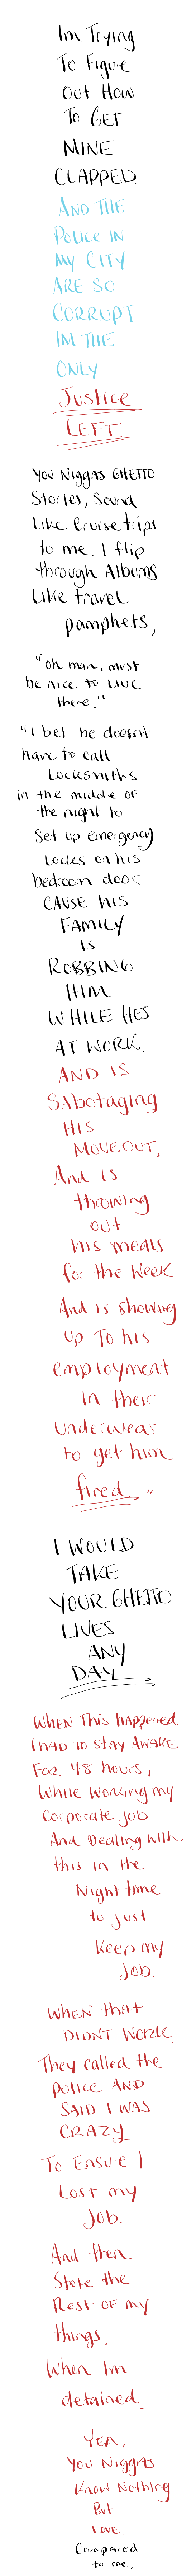 Im Trying
To Figure
Out How
To GET
MINE
CLAPPED.
AND THE
Police IN
MY CITY
ARE SO
CORRUPT
IM THE
ONLY
Justice
LEFT.
You Niggas GHETTO
Stories, Sound
Like Cruise trips
to me. I flip
through Albums
Like travel
pamphets,
"oh man, must
be nice to live
there."
"I bet he doesnt
have to call
Locksmiths
in the middle of
the night to
Set up emergency
Locks on his
bedroom door
CAUSE HIS
FAMILY
IS
ROBBING
HIM
WHILE HES
AT WORK.
AND IS
Sabotaging
HIS
MOVEOUT,
And is
throwing
out
his meals
for the week
And is showing
up To his
employment
In their
Underwear
to get him
fired."
I WOULD
TAKE
YOUR GHETTO
LIVES
ANY
DAY.
WHEN This happened
I HAD TO STAY AWAKE
FOR 48 hours,
While working my
Corporate job
And Dealing with
this in the
Night time
to just
Keep my
Job.
WHEN that
DIDNT WORK.
They called the
Police AND
SAID I WAS
CRAZY
To Ensure I
Lost my
Job.
And then
Stole the
Rest of my
things.
When Im
detained.
YEA,
You Niggas
Know Nothing
But
LOVE.
Compared
to me.